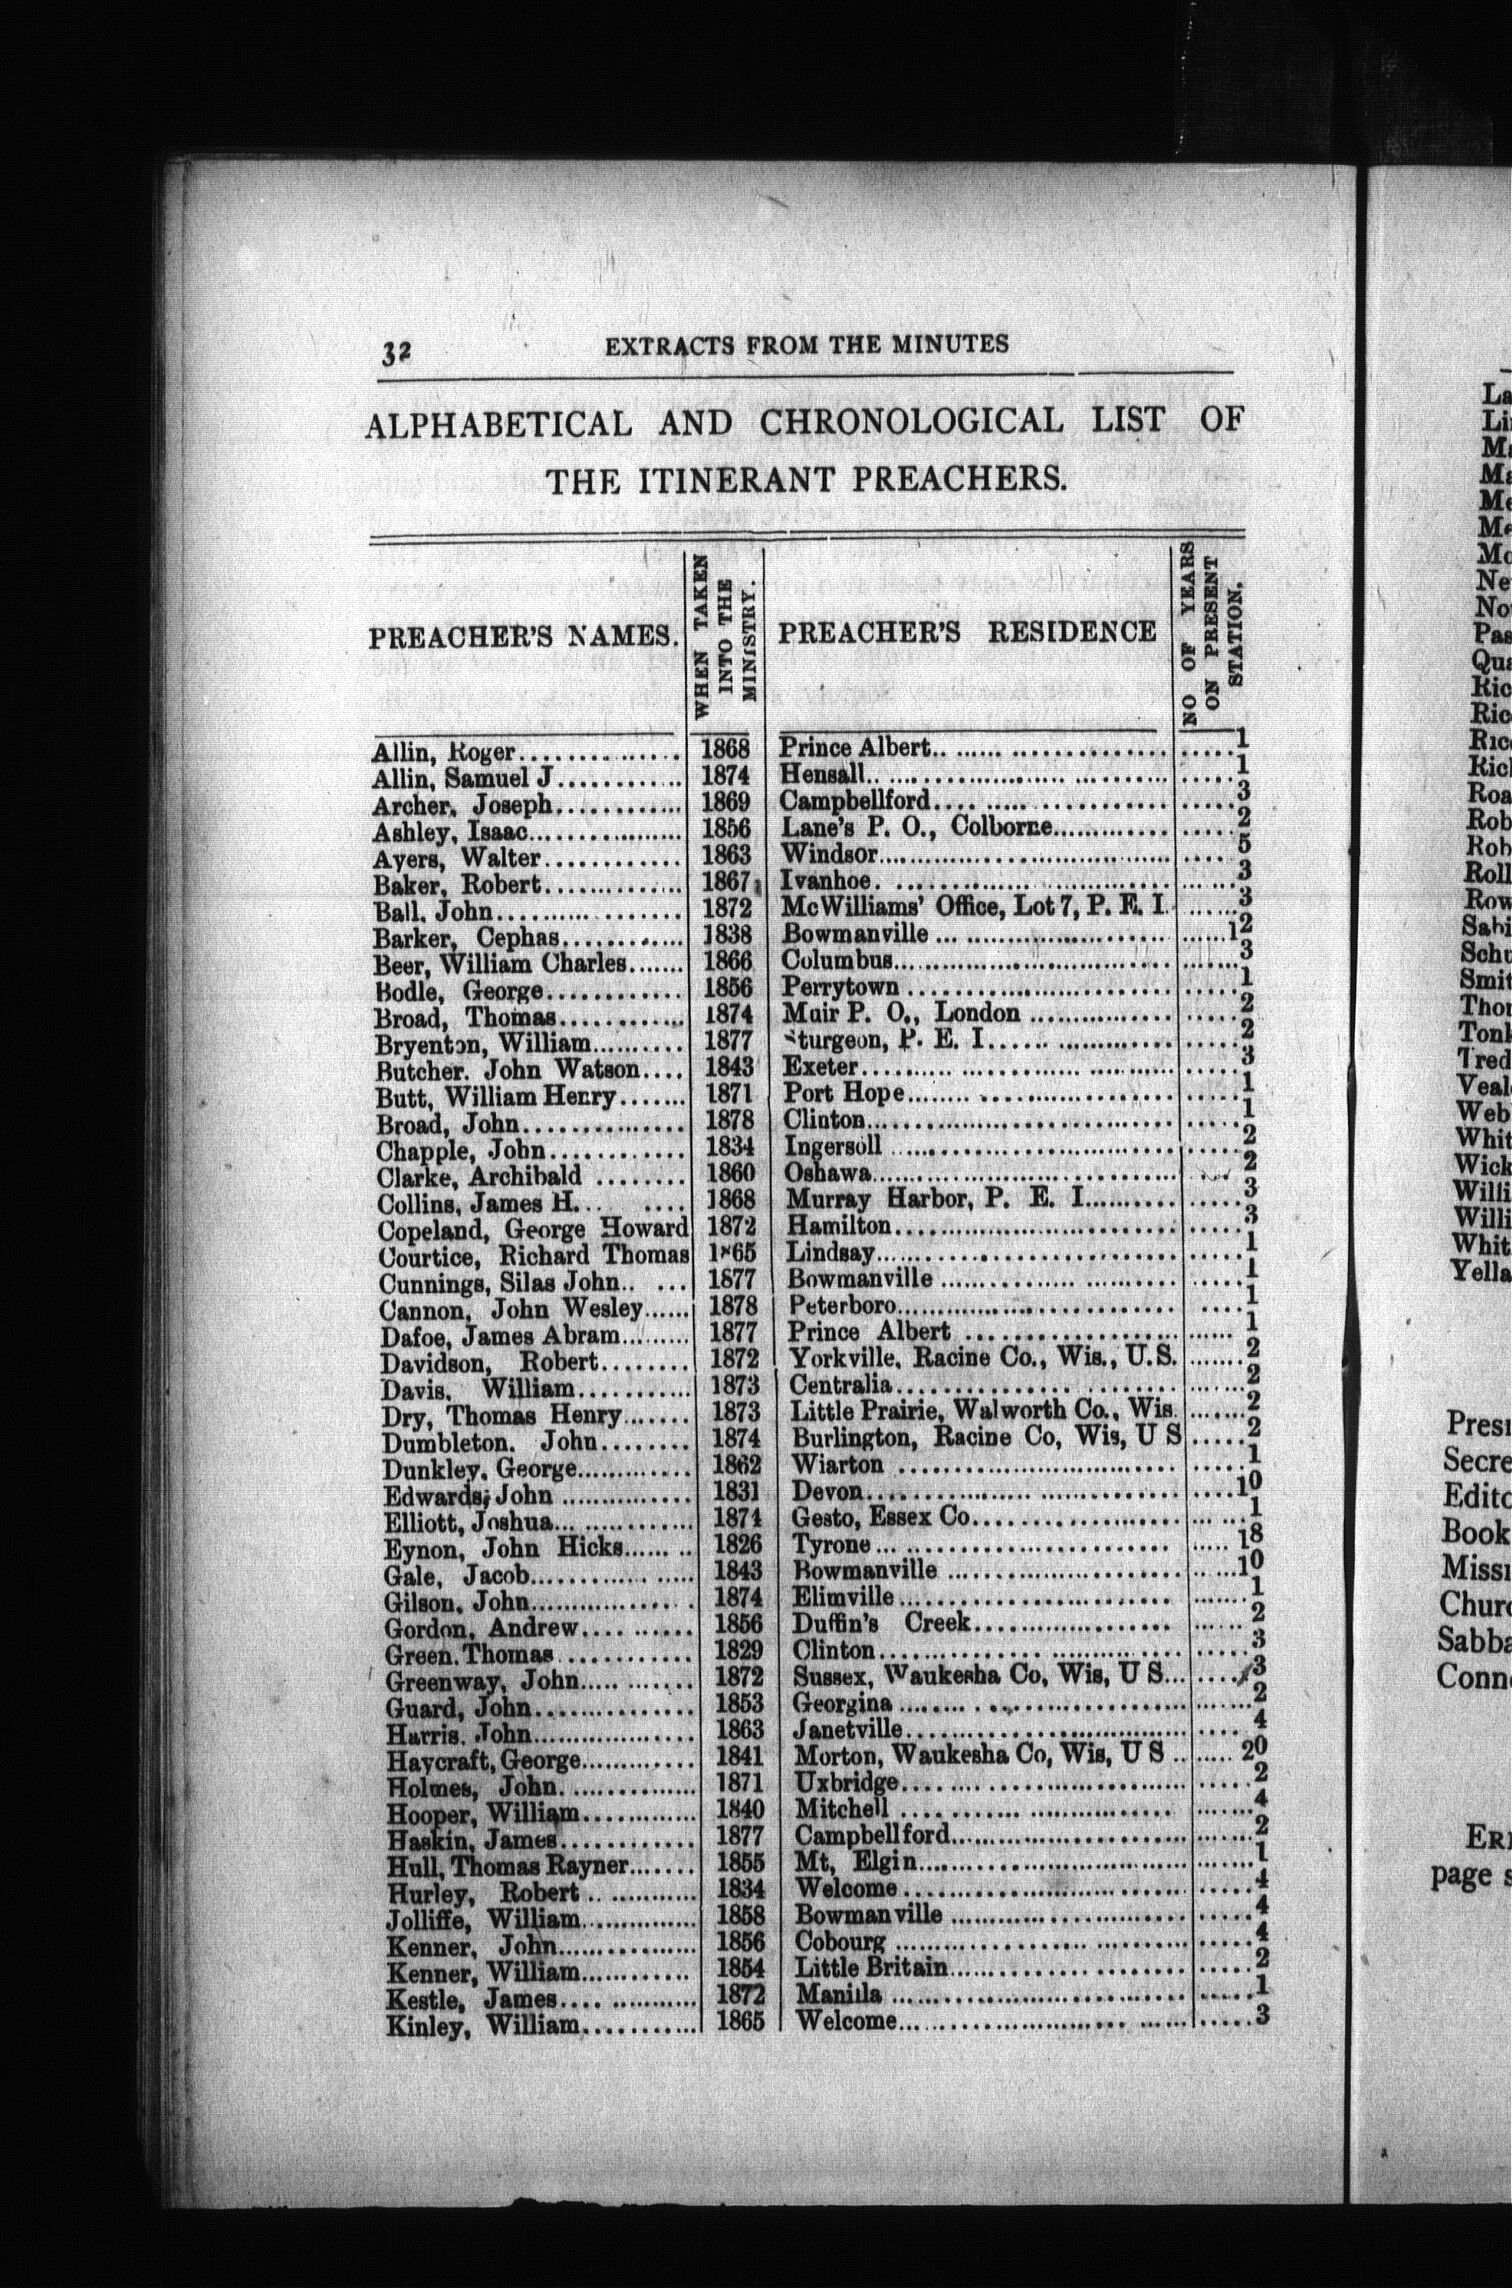 32 EXTRACTS FROM THE MINUTES
ALPHABETICAL AND CHRONOLOGICAL LIST OF
THE ITINERANT PREACHERS.
PREACHER'S NAMES. WHEN TAKEN INTO THE MINISTRY. PREACHER'S RESIDENCE NO OF YEARS ON PRESENT STATION.
Allin, Roger 1868 Prince Albert 1
Allin, Samuel J 1874 Hensall 1
Archer, Joseph 1869 Campbellford 3
Ashley, Isaac 1856 Lane's P. O., Colborne 2
Ayers, Walter 1863 Windsor 5
Baker, Robert 1867 Ivanhoe 3
Ball, John 1872 McWilliams' Office, Lot 7, P. E. I. 3
Barker, Cephas 1838 Bowmanville 12
Beer, William Charles 1866 Columbus 3
Bodle, George 1856 Perrytown 1
Broad, Thomas 1874 Muir P. O., London 2
Bryenton, William 1877 Sturgeon, P. E. I. 2
Butcher. John Watson 1843 Exeter 3
Butt, William Henry 1871 Port Hope 1
Broad, John 1878 Clinton 1
Chapple, John 1834 Ingersoll 2
Clarke, Archibald 1860 Oshawa 2
Collins, James H. 1868 Murray Harbor, P. E. I. 3
Copeland, George Howard 1872 Hamilton 3
Courtice, Richard Thomas 1865 Lindsay 1
Cunnings, Silas John 1877 Bowmanville 1
Cannon, John Wesley 1878 Peterboro 1
Dafoe, James Abram 1877 Prince Albert 1
Davidson, Robert 1872 Yorkville, Racine Co., Wis., U.S. 2
Davis, William 1873 Centralia 2
Dry, Thomas Henry 1873 Little Prairie, Walworth Co., Wis. 2
Dumbleton. John 1874 Burlington, Racine Co, Wis, U S 2
Dunkley. George 1862 Wiarton 1
Edwards, John 1831 Devon 10
Elliott, Joshua 1874 Gesto, Essex Co. 1
Eynon, John Hicks 1826 Tyrone 18
Gale, Jacob 1843 Bowmanville 10
Gilson, John 1874 Elimville 1
Gordon, Andrew 1856 Duffin's Creek 2
Green, Thomas 1829 Clinton 3
Greenway, John 1872 Sussex, Waukesha Co, Wis, U S 3
Guard, John 1853 Georgina 2
Harris, John 1863 Janetville 4
Haycraft, George 1841 Morton, Waukesha Co, Wis, U S 20
Holmes, John 1871 Uxbridge 2
Hooper, William 1840 Mitchell 4
Haskin, James 1877 Campbellford 2
Hull, Thomas Rayner 1855 Mt, Elgin 1
Hurley, Robert 1834 Welcome 4
Jolliffe, William 1858 Bowmanville 4
Kenner, John 1856 Cobourg 4
Kenner, William 1854 Little Britain 2
Kestle, James 1872 Manilla 1
Kinley, William 1865 Welcome 3